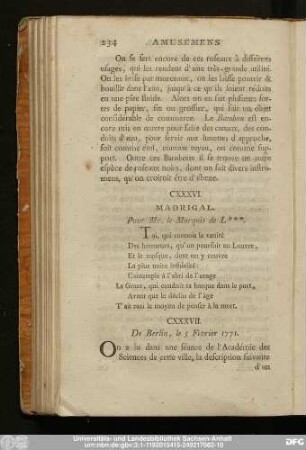 234 AMUSEMENS
On se sert encore de ces roseaux à différens
usages, qui les rendent d'une très-grande utilité.
On les brise par morceaux, on les laisse pourrir &
bouillir dans l'eau, jusqu'à ce qu'ils soient réduits
en une pâte fluide. Alors on en fait plusieurs sortes
de papier, fin ou grossier, qui fait un objet
considérable de commerce. Le Bambou est
encore mis en œuvre pour faire des canaux, des conduits
d'eau, pour servir aux lunettes d'approche,
soit comme étui, comme tuyau, ou comme support.
Outre ces Bambous il se trouve une autre
espèce de roseaux noirs, dont on fait divers instrumens,
qu'on croiroit être d'ébene.
CXXXVI.
MADRIGAL.
Pour Mr. le Marquis de L***.
Toi, qui connois la vanité
Des honneurs, qu'on poursuit au Louvre,
Et le masque, dont on y couvre
La plus noire infidélité:
Contemple à l'abri de l'orage
La Grace, qui conduit ta barque dans le port,
Avant que le déclin de l'âge
T'ait ravi le moyen de penser à la mort.
CXXXVII.
De Berlin, le 5 Février 1771.
On a lu dans une séance de l'Académie des
Sciences de cette ville, la description suivante
d'un
Universitäts- und Landesbibliothek Sachsen-Anhalt
urn:nbn:de:gbv:3:1-1192015415-249217662-10
DFG